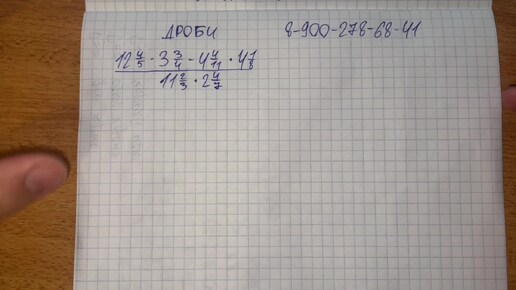 ДРОБИ 8-900-278-68-41
12 4/5 · 3 3/4 - 4 4/11 · 4 1/8
11 2/3 · 2 4/7